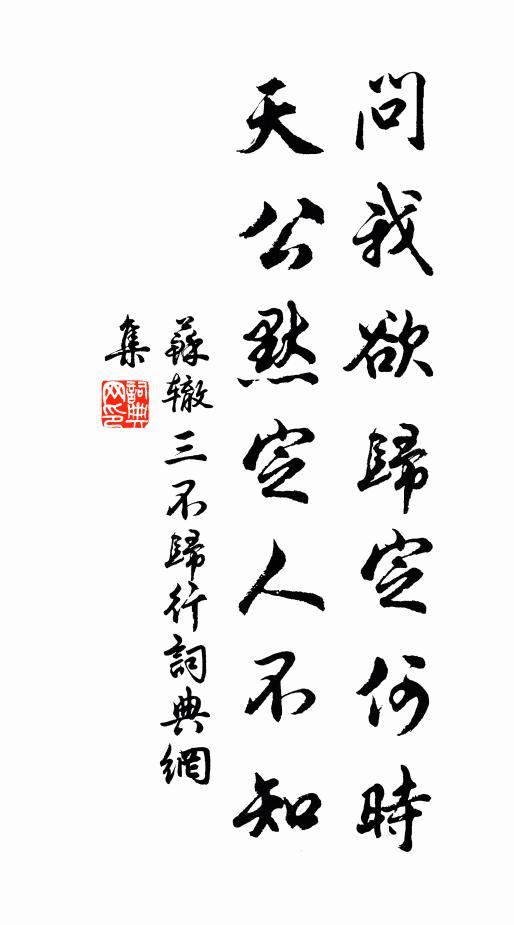 問我欲歸定何時
天公默定人不知
蘇辙三不歸行詞典網
集
詞典
网印